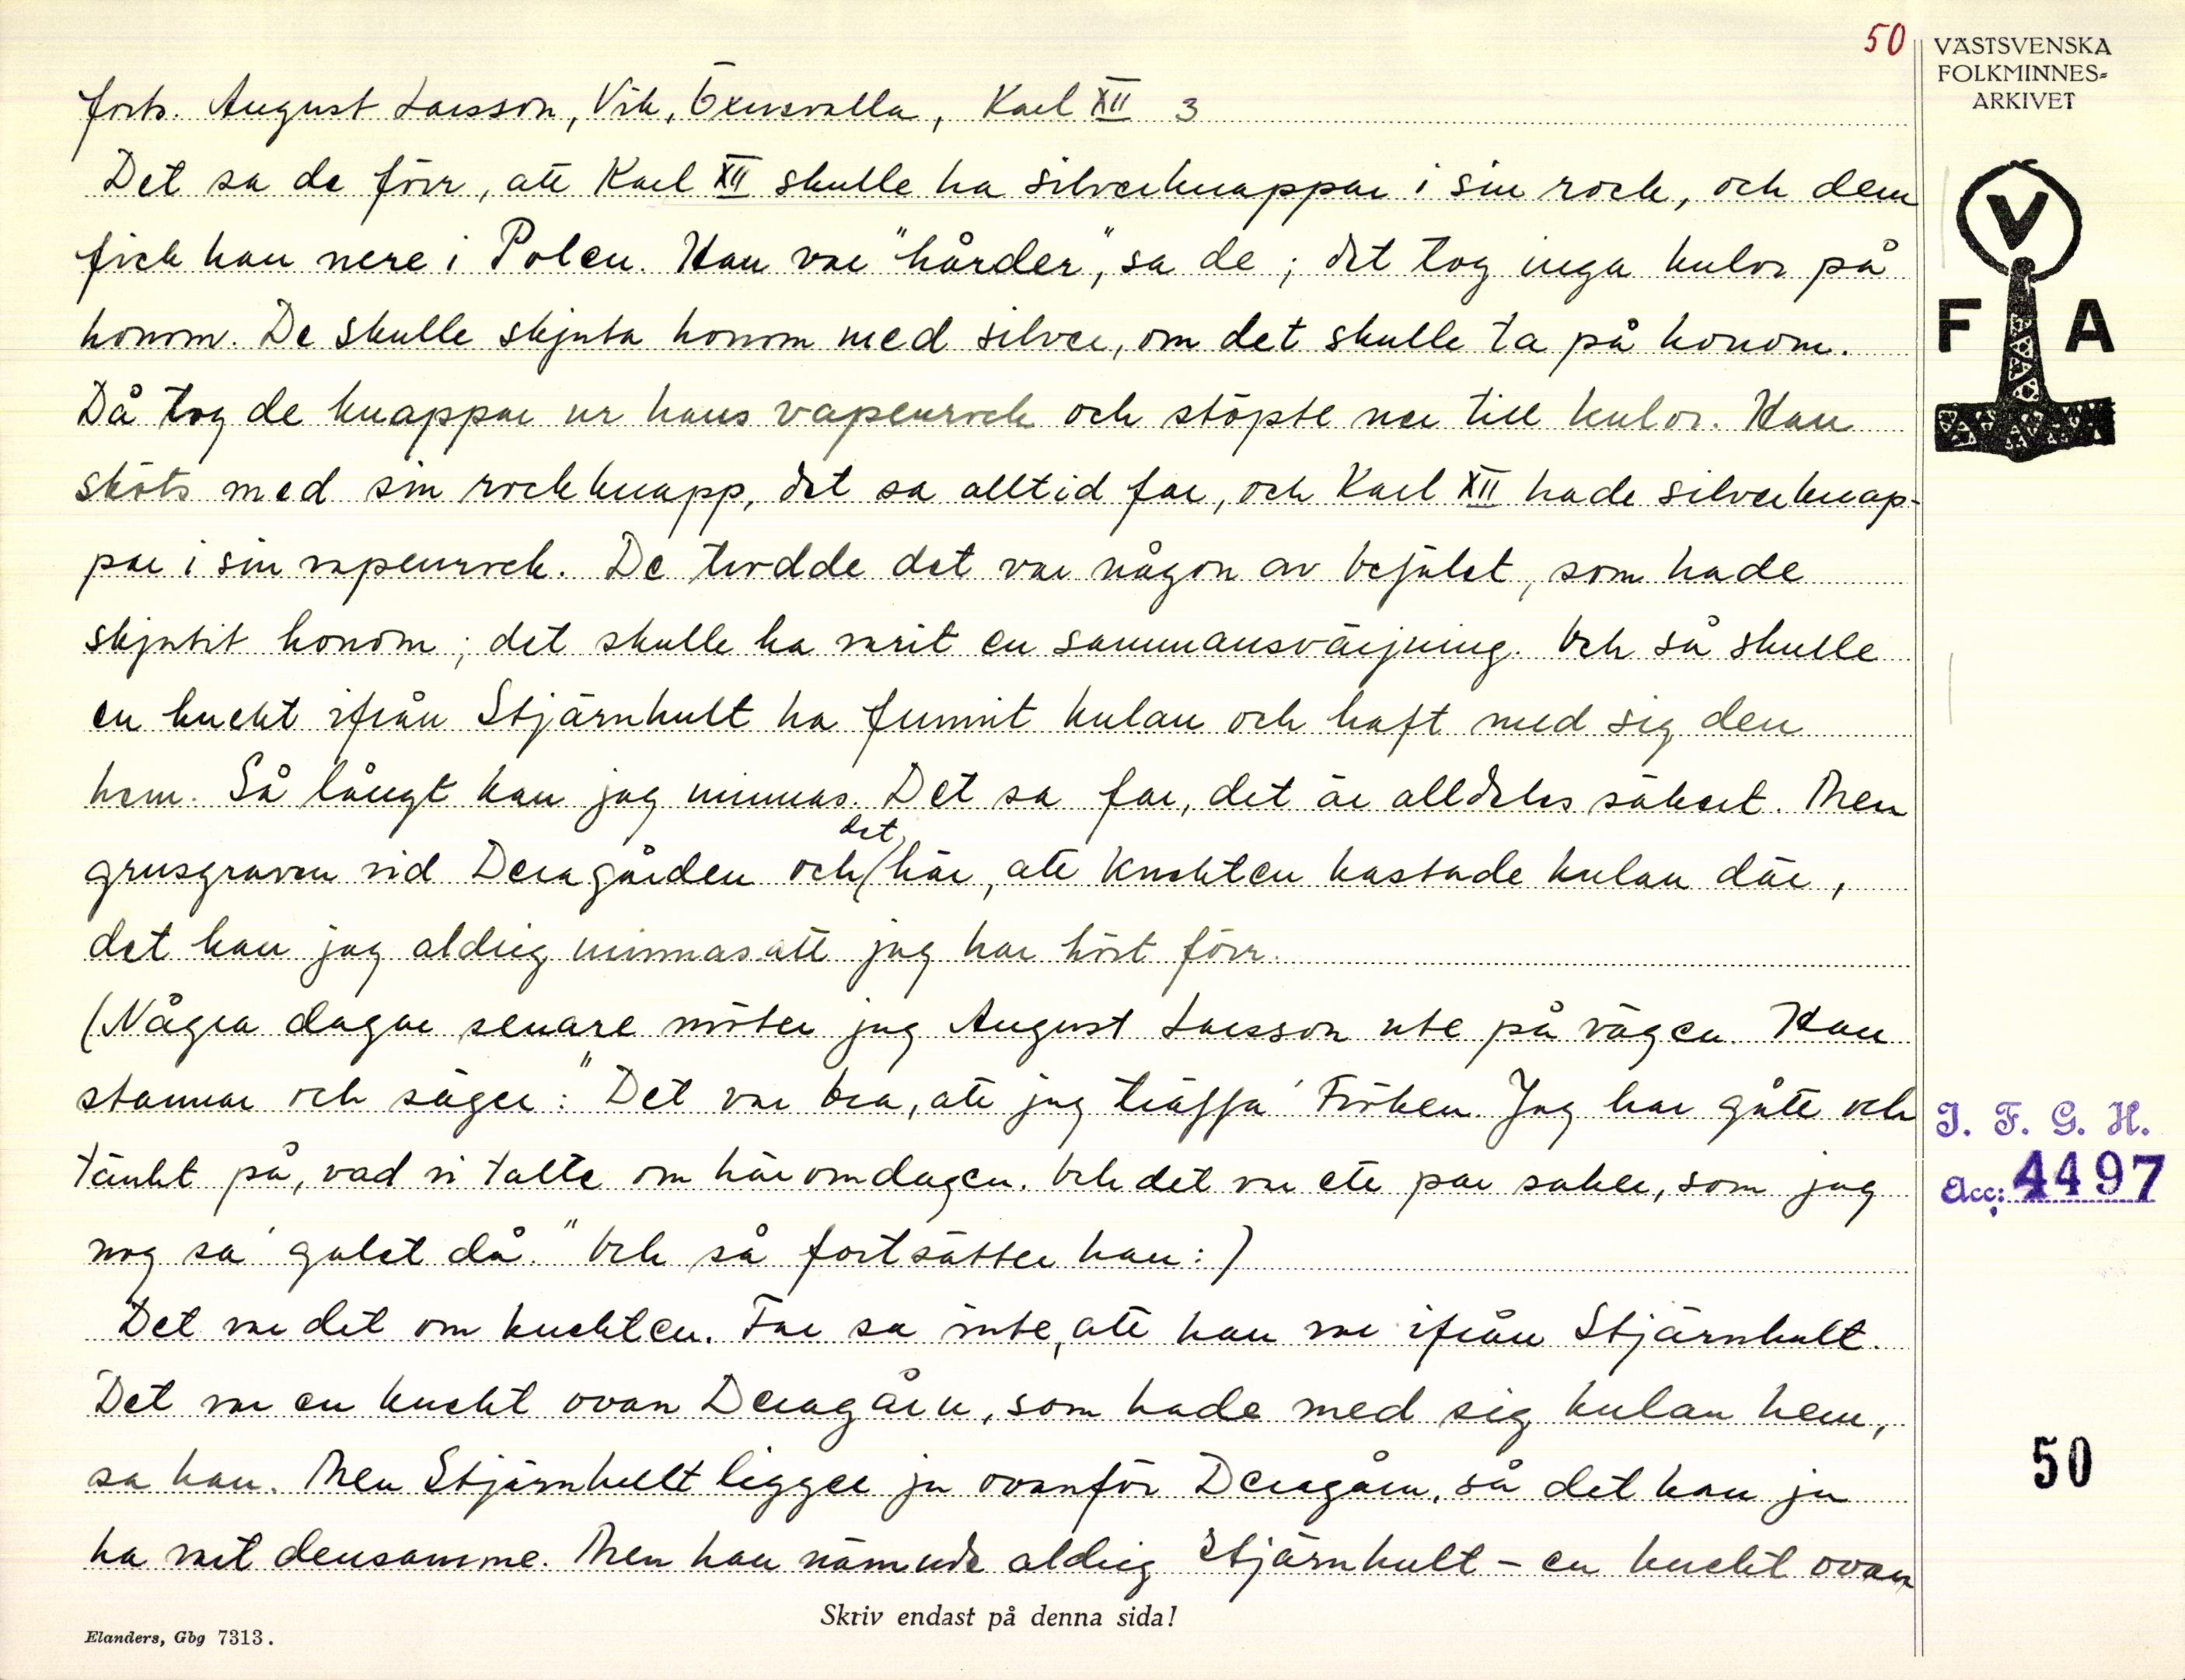 50
VÄSTSVENSKA
FOLKMINNES-
ARKIVET
forts. August Larsson, Vik, Öxnevalla, Karl XII 3
Det sa de förr, att Karl XII skulle ha silverknappar i sin rock, och dem
fick han nere i Polen. Han var "hårder", sa de; det tog inga kulor på
honom. De skulle skjuta honom med silver, om det skulle ta på honom.
Då tog de knappar ur hans vapenrock och stöpte ner till kulor. Han
sköts med sin rockknapp, det sa alltid far, och Karl XII hade silverknap-
par i sin vapenrock. De trodde det var någon av befälet, som hade
skjutit honom; det skulle ha varit en sammansvärjning. Och så skulle
en knekt ifrån Stjärnhult ha funnit kulan och haft med sig den
hem. Så långt kan jag minnas. Det sa far, det är alldeles säkert. Men
grusgraven vid Deragården och det här, att knekten kastade kulan där,
det kan jag aldrig minnas att jag har hört förr.
(Några dagar senare möter jag August Larsson ute på vägen. Han
stannar och säger: "Det var bra, att jag träffa' Fröken. Jag har gått och
tänkt på, vad vi talte om häromdagen. Och det var ett par saker, som jag
nog sa' galet då." Och så fortsätter han:)
Det var det om knekten. Far sa inte, att han var ifrån Stjärnhult.
Det var en knekt ovan Deragårn, som hade med sig kulan hem,
sa han. Men Stjärnhult ligger ju ovanför Deragårn, så det kan ju
ha vart densamme. Men han nämnde aldrig Stjärnhult – en knekt ovan
V
F A
I. F. G. H.
Acc: 4497
50
Skriv endast på denna sida!
Elanders, Gbg 7313.